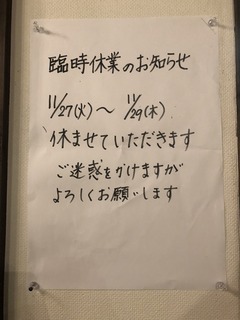 臨時休業のお知らせ
11/27(火)～11/29(木)
休ませていただきます
ご迷惑をかけますが
よろしくお願いします